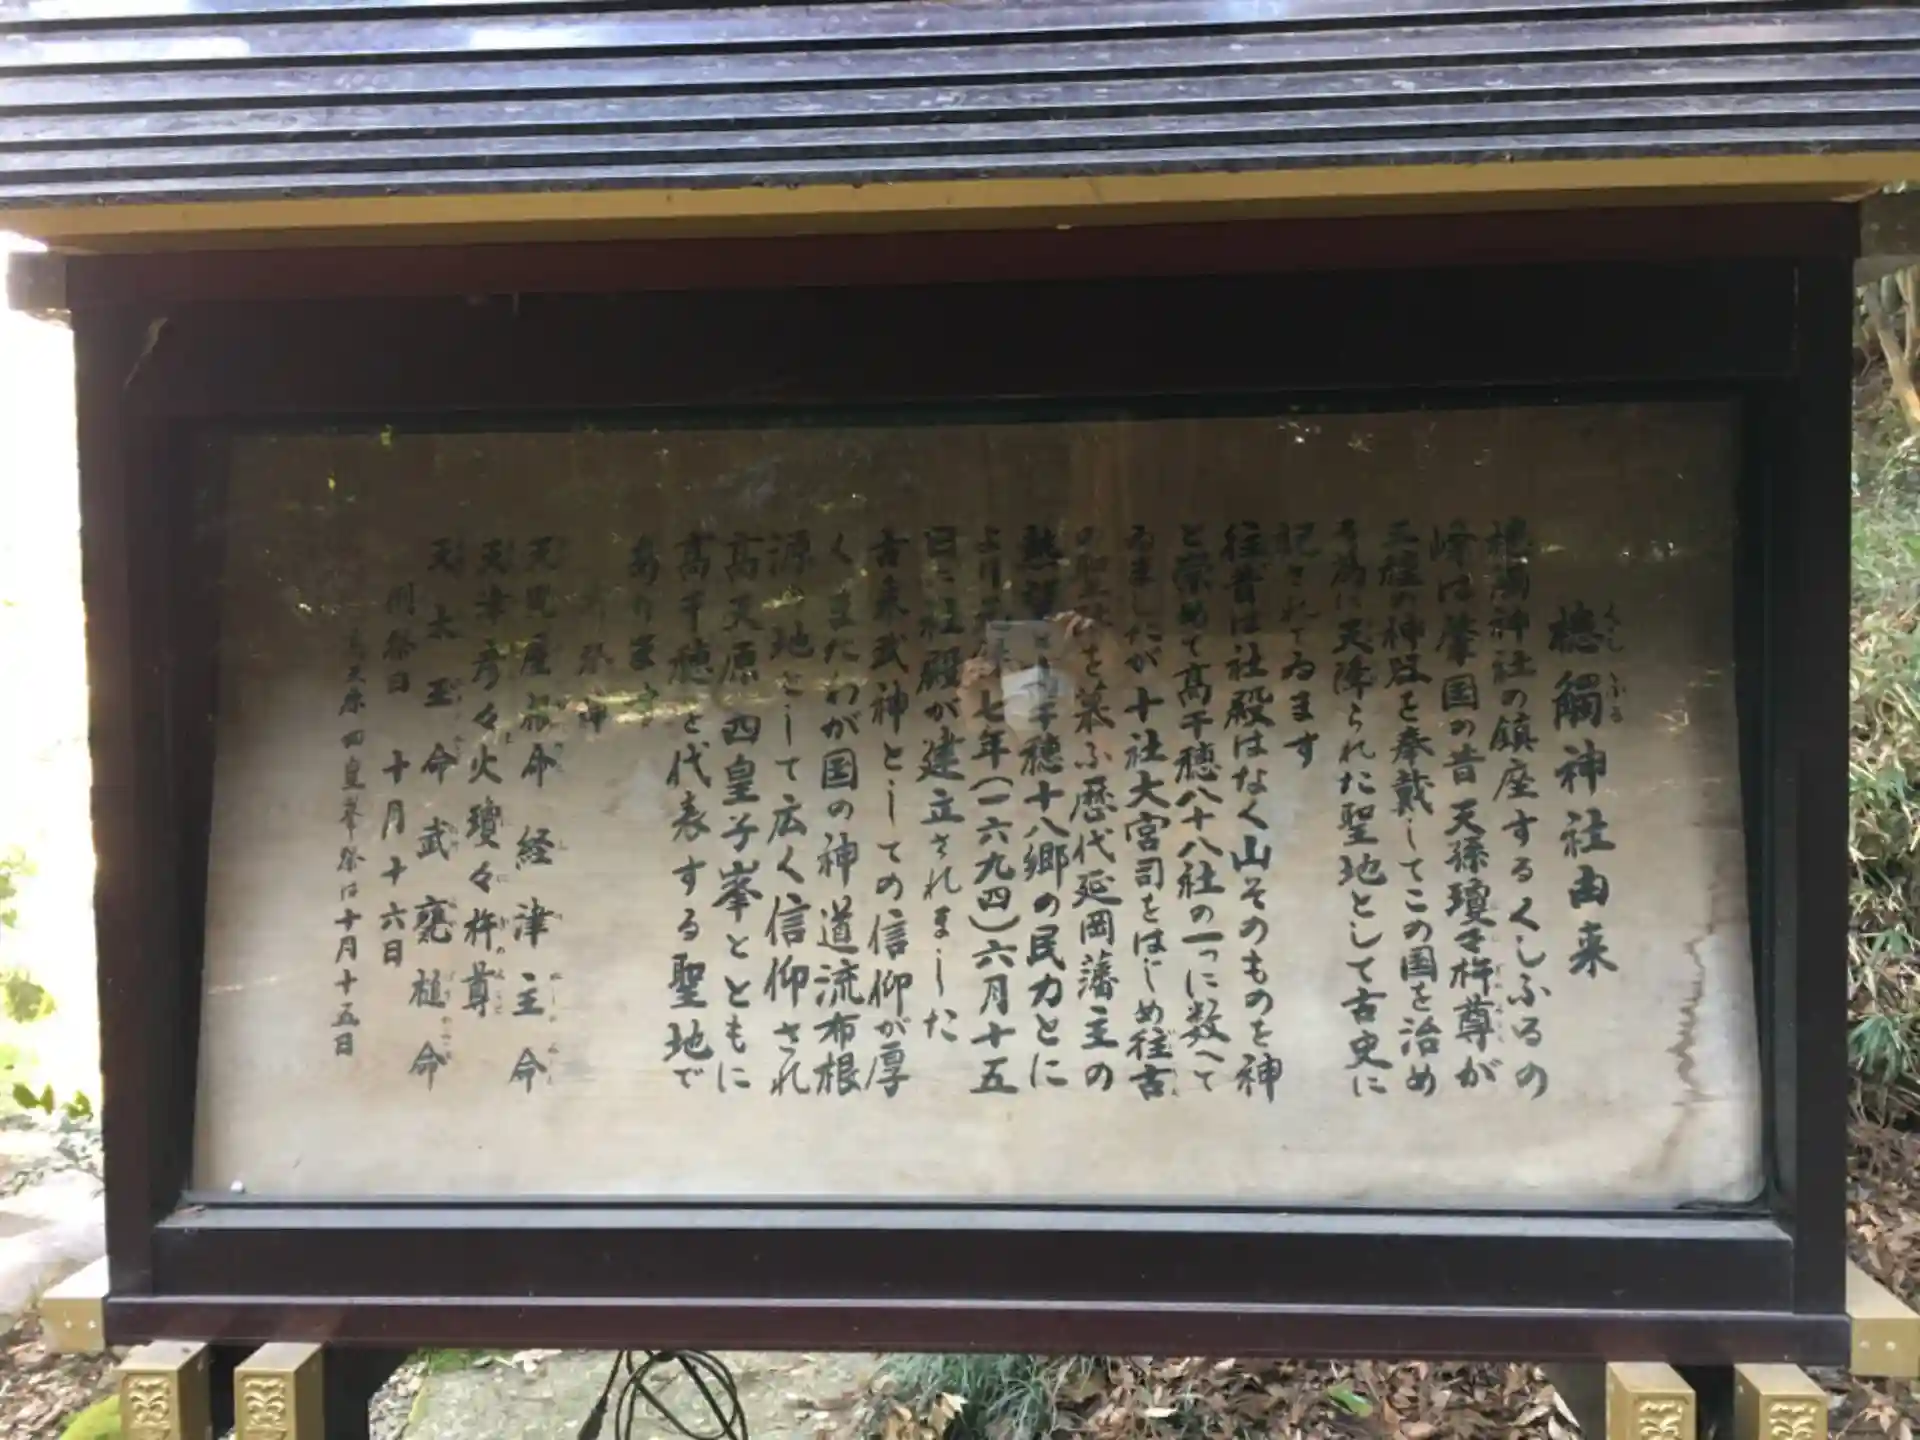 槵觸神社由来
槵觸神社の鎮座するくしふるの
峰は肇国の昔天孫瓊々杵尊が
三種の神器を奉戴してこの国を治め
る為に天降られた聖地として古史に
記されてゐます
往昔は社殿はなく山そのものを神
と崇めて高千穂八十八社の一つに数へて
ゐましたが十社大宮司をはじめ往古
の聖跡を慕ふ歴代延岡藩主の
熱望と高千穂十八郷の民力とに
より元禄七年(一六九四)六月十五
日に社殿が建立されました
古来武神としての信仰が厚
くまたわが国の神道流布根
源の地として広く信仰され
高天原四皇子峯とともに
高千穂を代表する聖地で
あります
御祭神
天児屋根命 経津主命
天津彦々火瓊々杵尊
天太玉命 武甕槌命
例祭日 十月十六日
高天原四皇峯祭は十月十五日